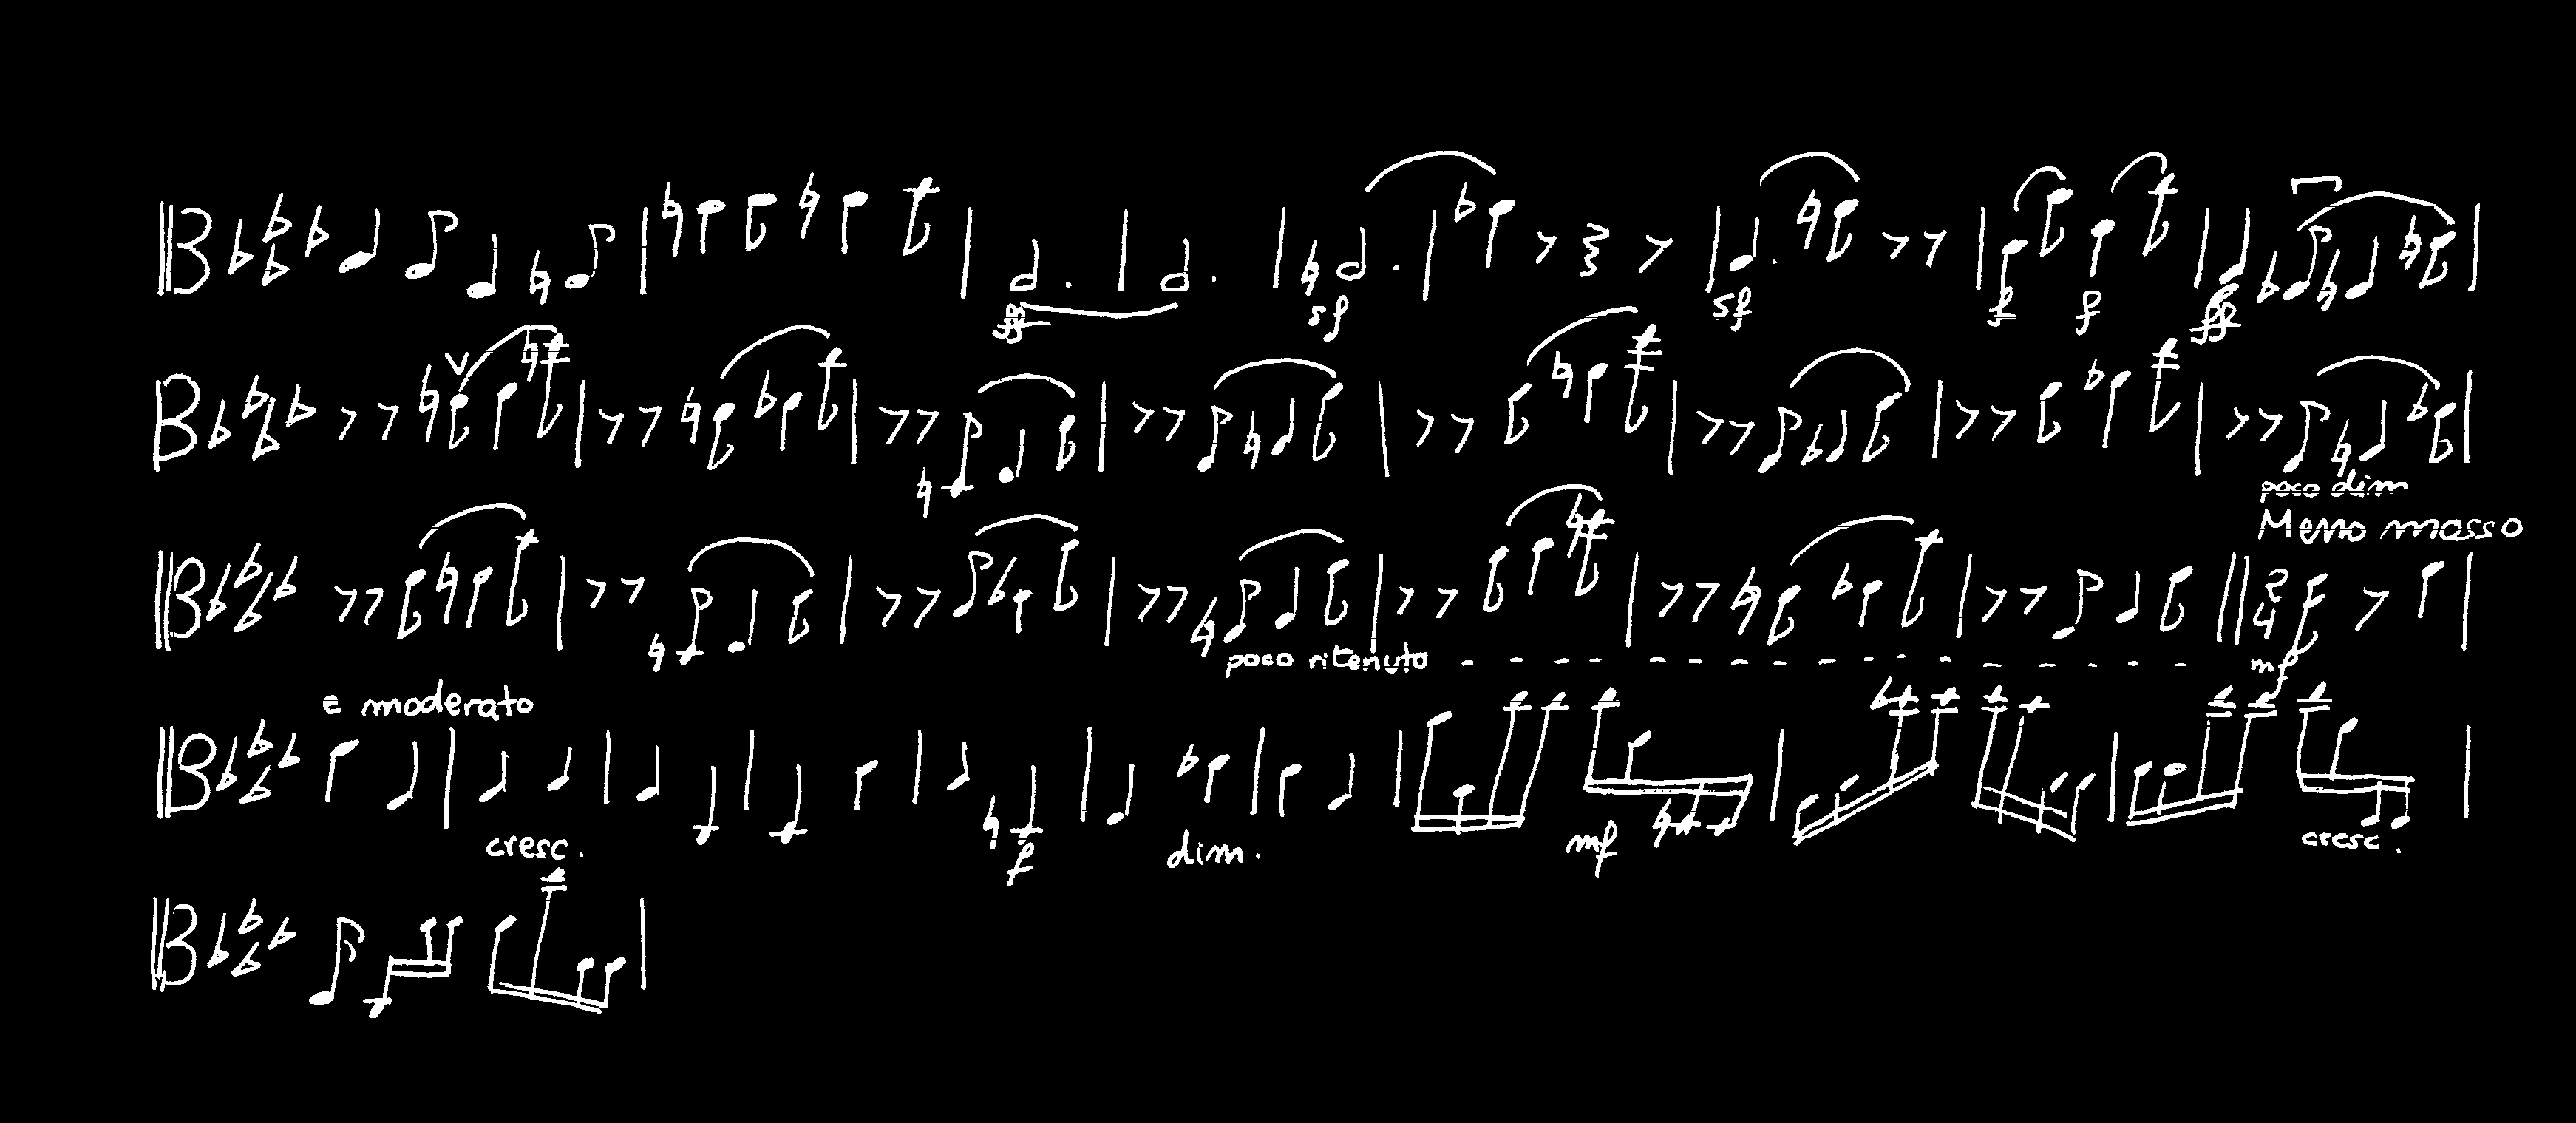 ff sf sf f f ff
poco dim
Meno mosso
poco ritenuto - - - - - - - - - - - - - - - - mf
e moderato
cresc. f dim. mf cresc.